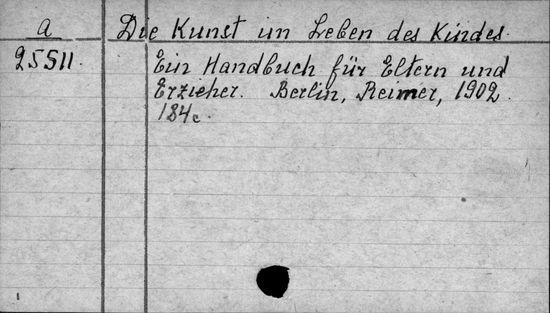 a
Die Kunst im Leben des Kindes.
25511.
Ein Handbuch für Eltern und
Erzieher. Berlin, Reimer, 1902.
184c.